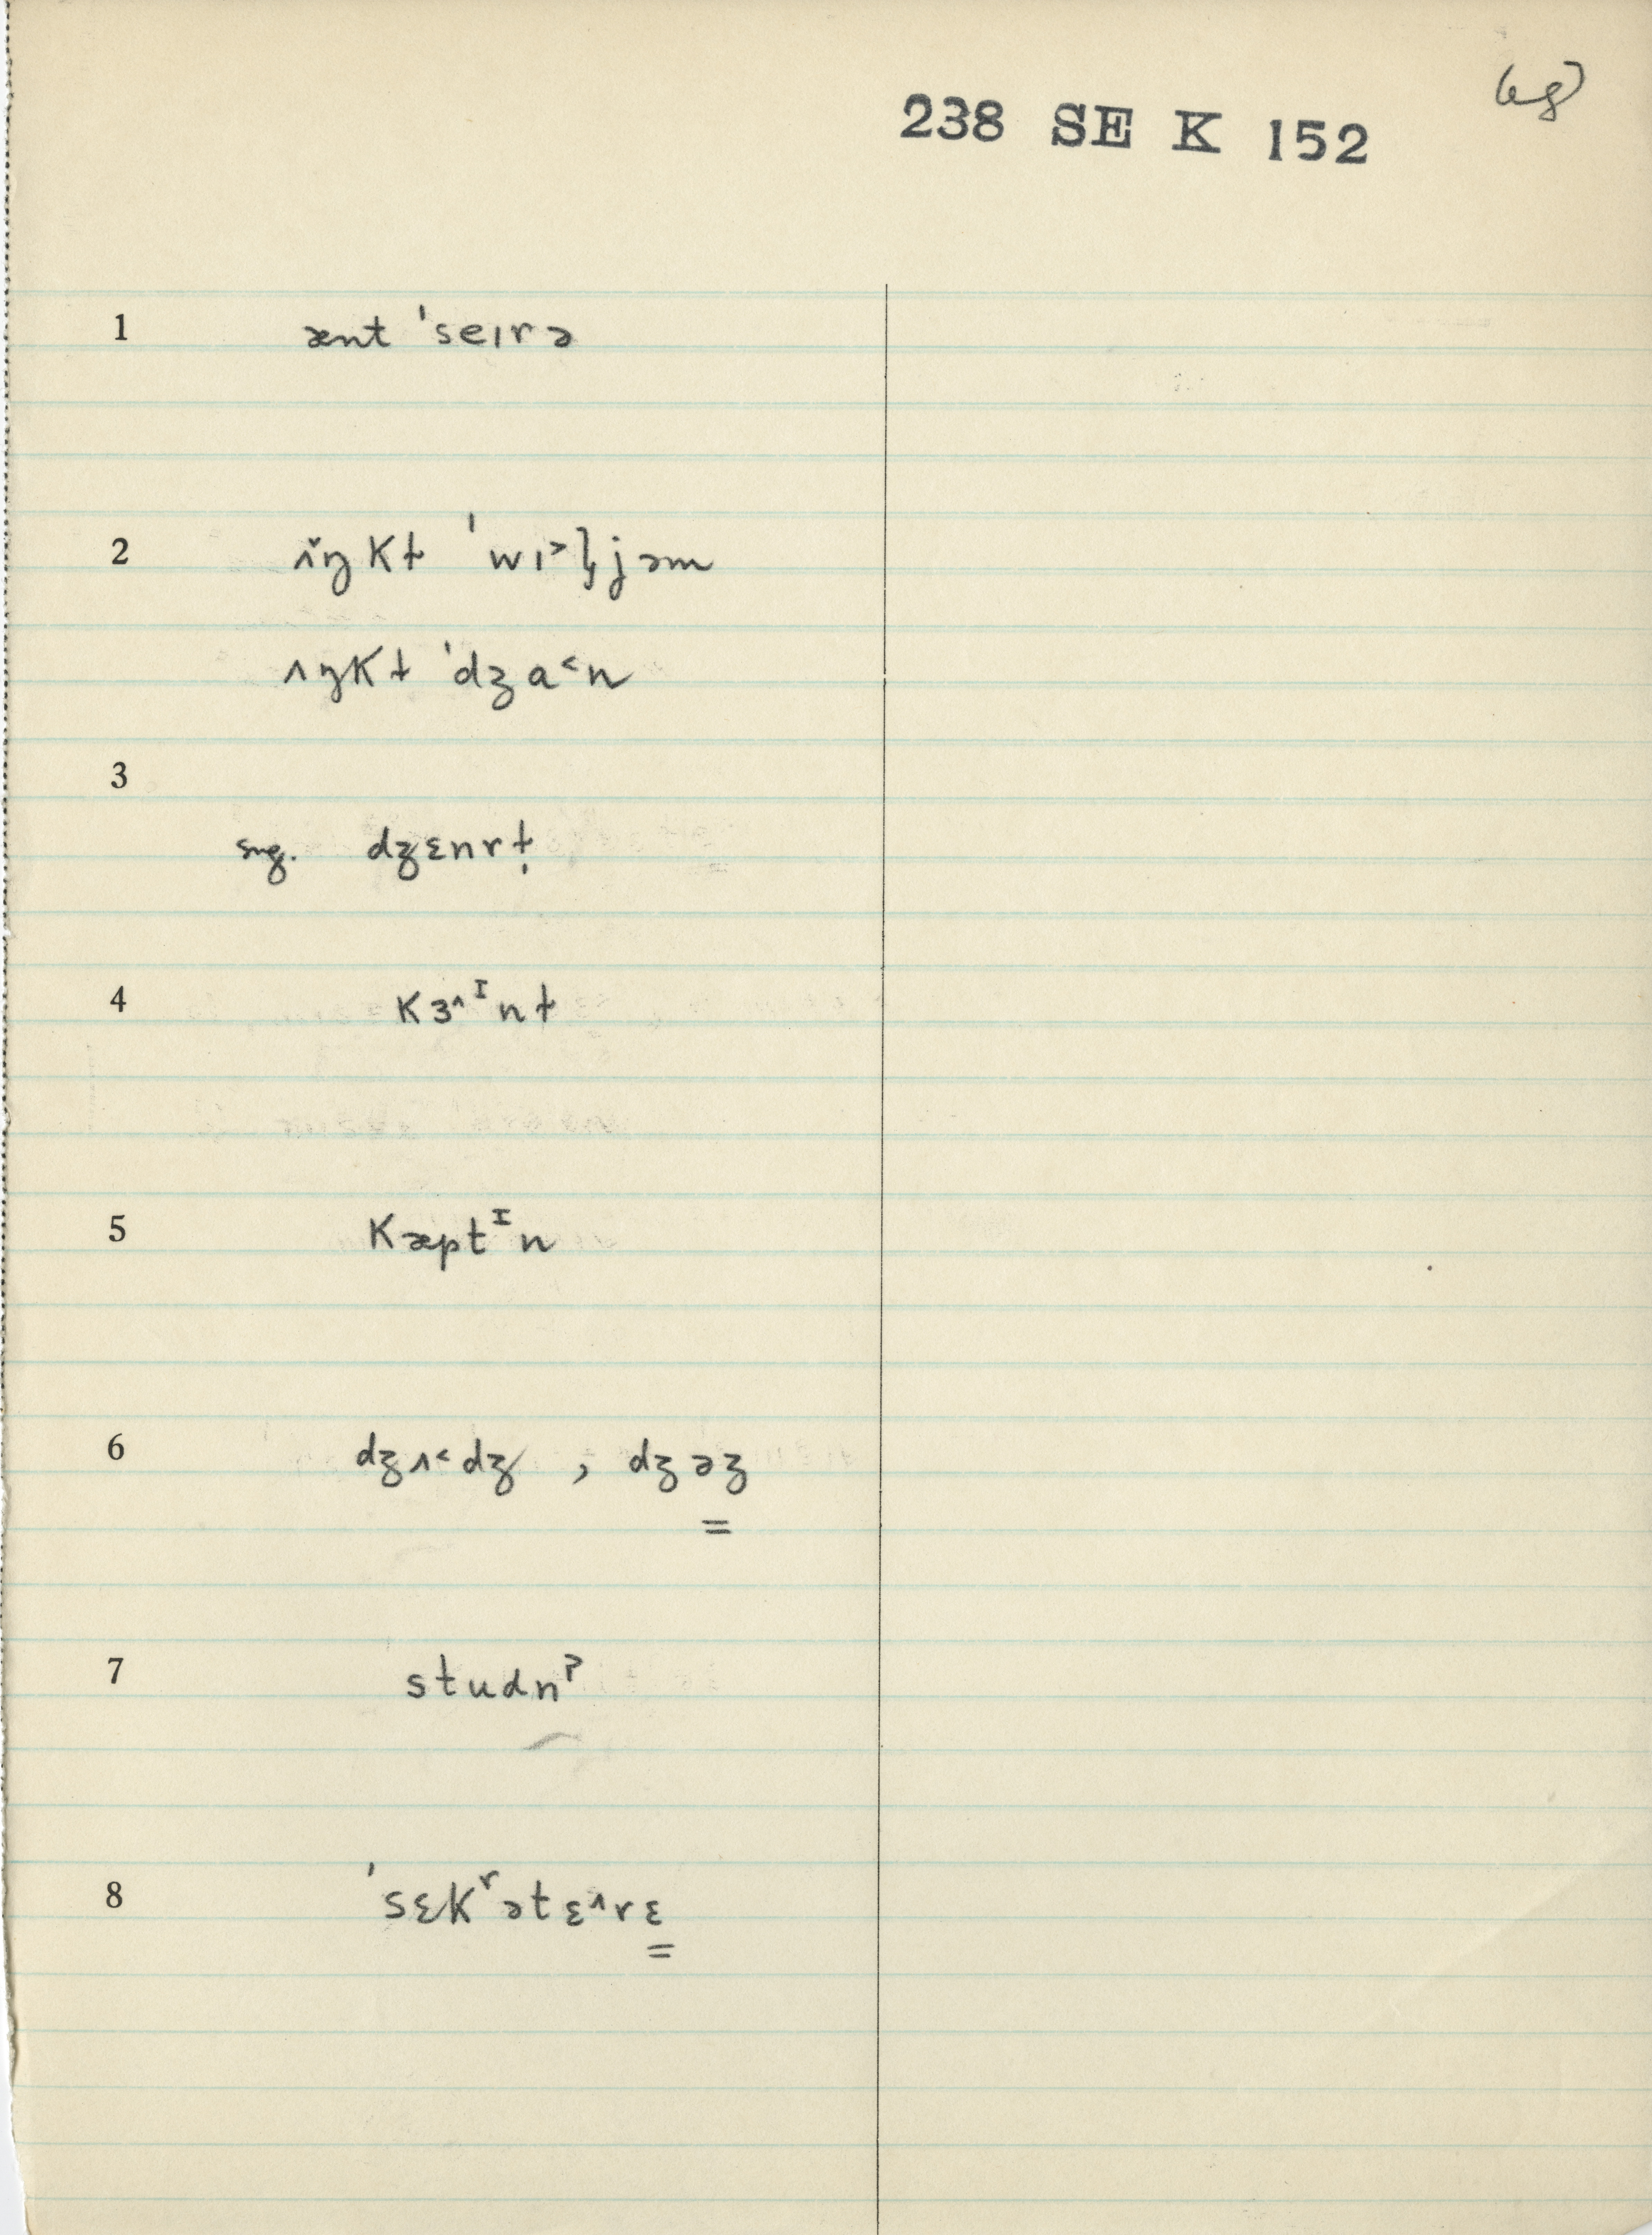 238 SE K 152
1 ænt ˈseɪrə
2 ʌ̃ŋkɫ ˈwɪ˃ljəm
ʌŋkɫ ˈdʒɑ˂n
3
sug. dʒɛnrɫ̩
4 kɜ^ɪnɫ
5 kæptᴵn
6 dʒʌ˂dʒ , dʒəʒ
=
7 studnˀ
8 ˈsɛkʳətɛ^rɛ
=